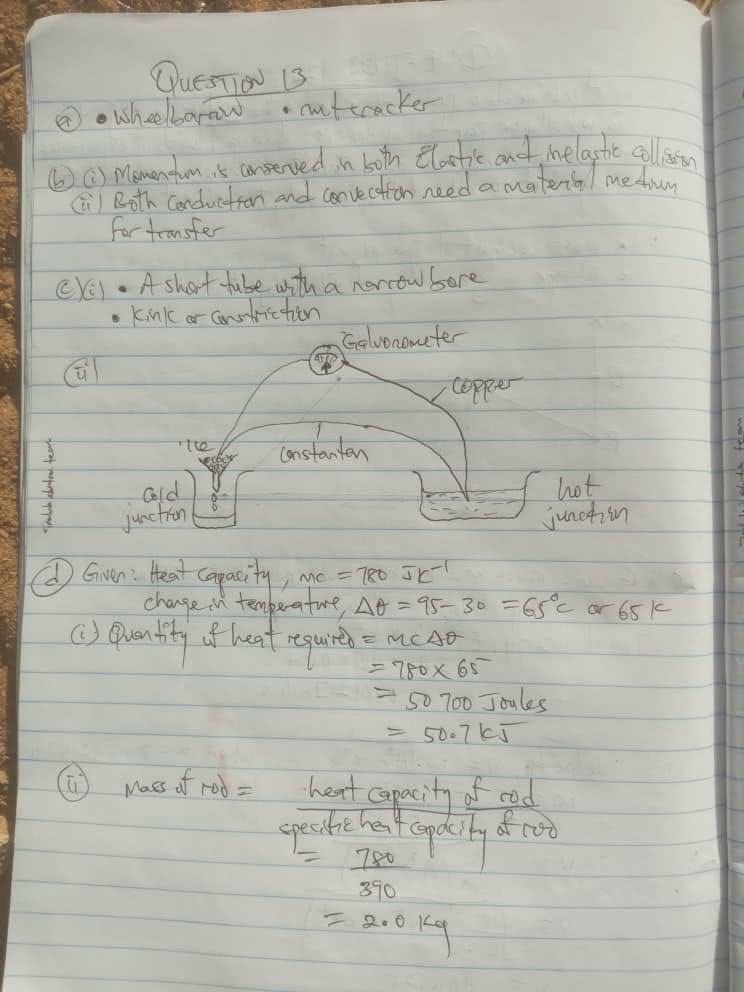 QUESTION 13
a) • Wheelbarow • nutcracker
b) (i) Momentum is conserved in both Elastic and inelastic collission
(ii) Both conduction and convection need a material medium
for transfer
c)(i) • A short tube with a narrow bore
• Kink or constriction
Galvonometer
(ii)
copper
ice
constantan
cold
junction
hot
junction
d) Given: Heat capacity, mc = 780 JK⁻¹
change in temperature, Δθ = 95 - 30 = 65°C or 65 K
(i) Quantity of heat required = mcΔθ
= 780 x 65
= 50 700 Joules
= 50.7 KJ
(ii) Mass of rod = heat capacity of rod
specific heat capacity of rod
= 780
390
= 2.0 Kg